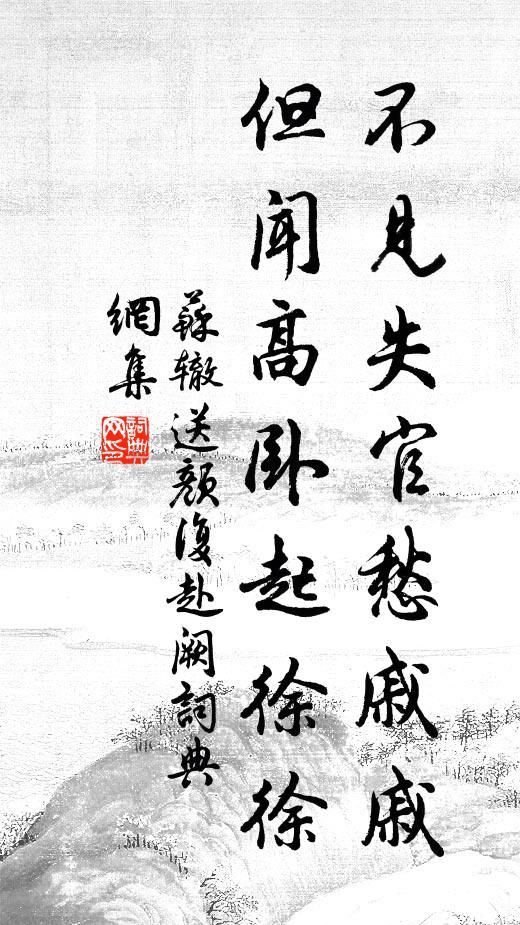 不見失官愁戚戚
但聞高臥起徐徐
蘇轍送顏復赴闕詞典
網集
詞典
网印